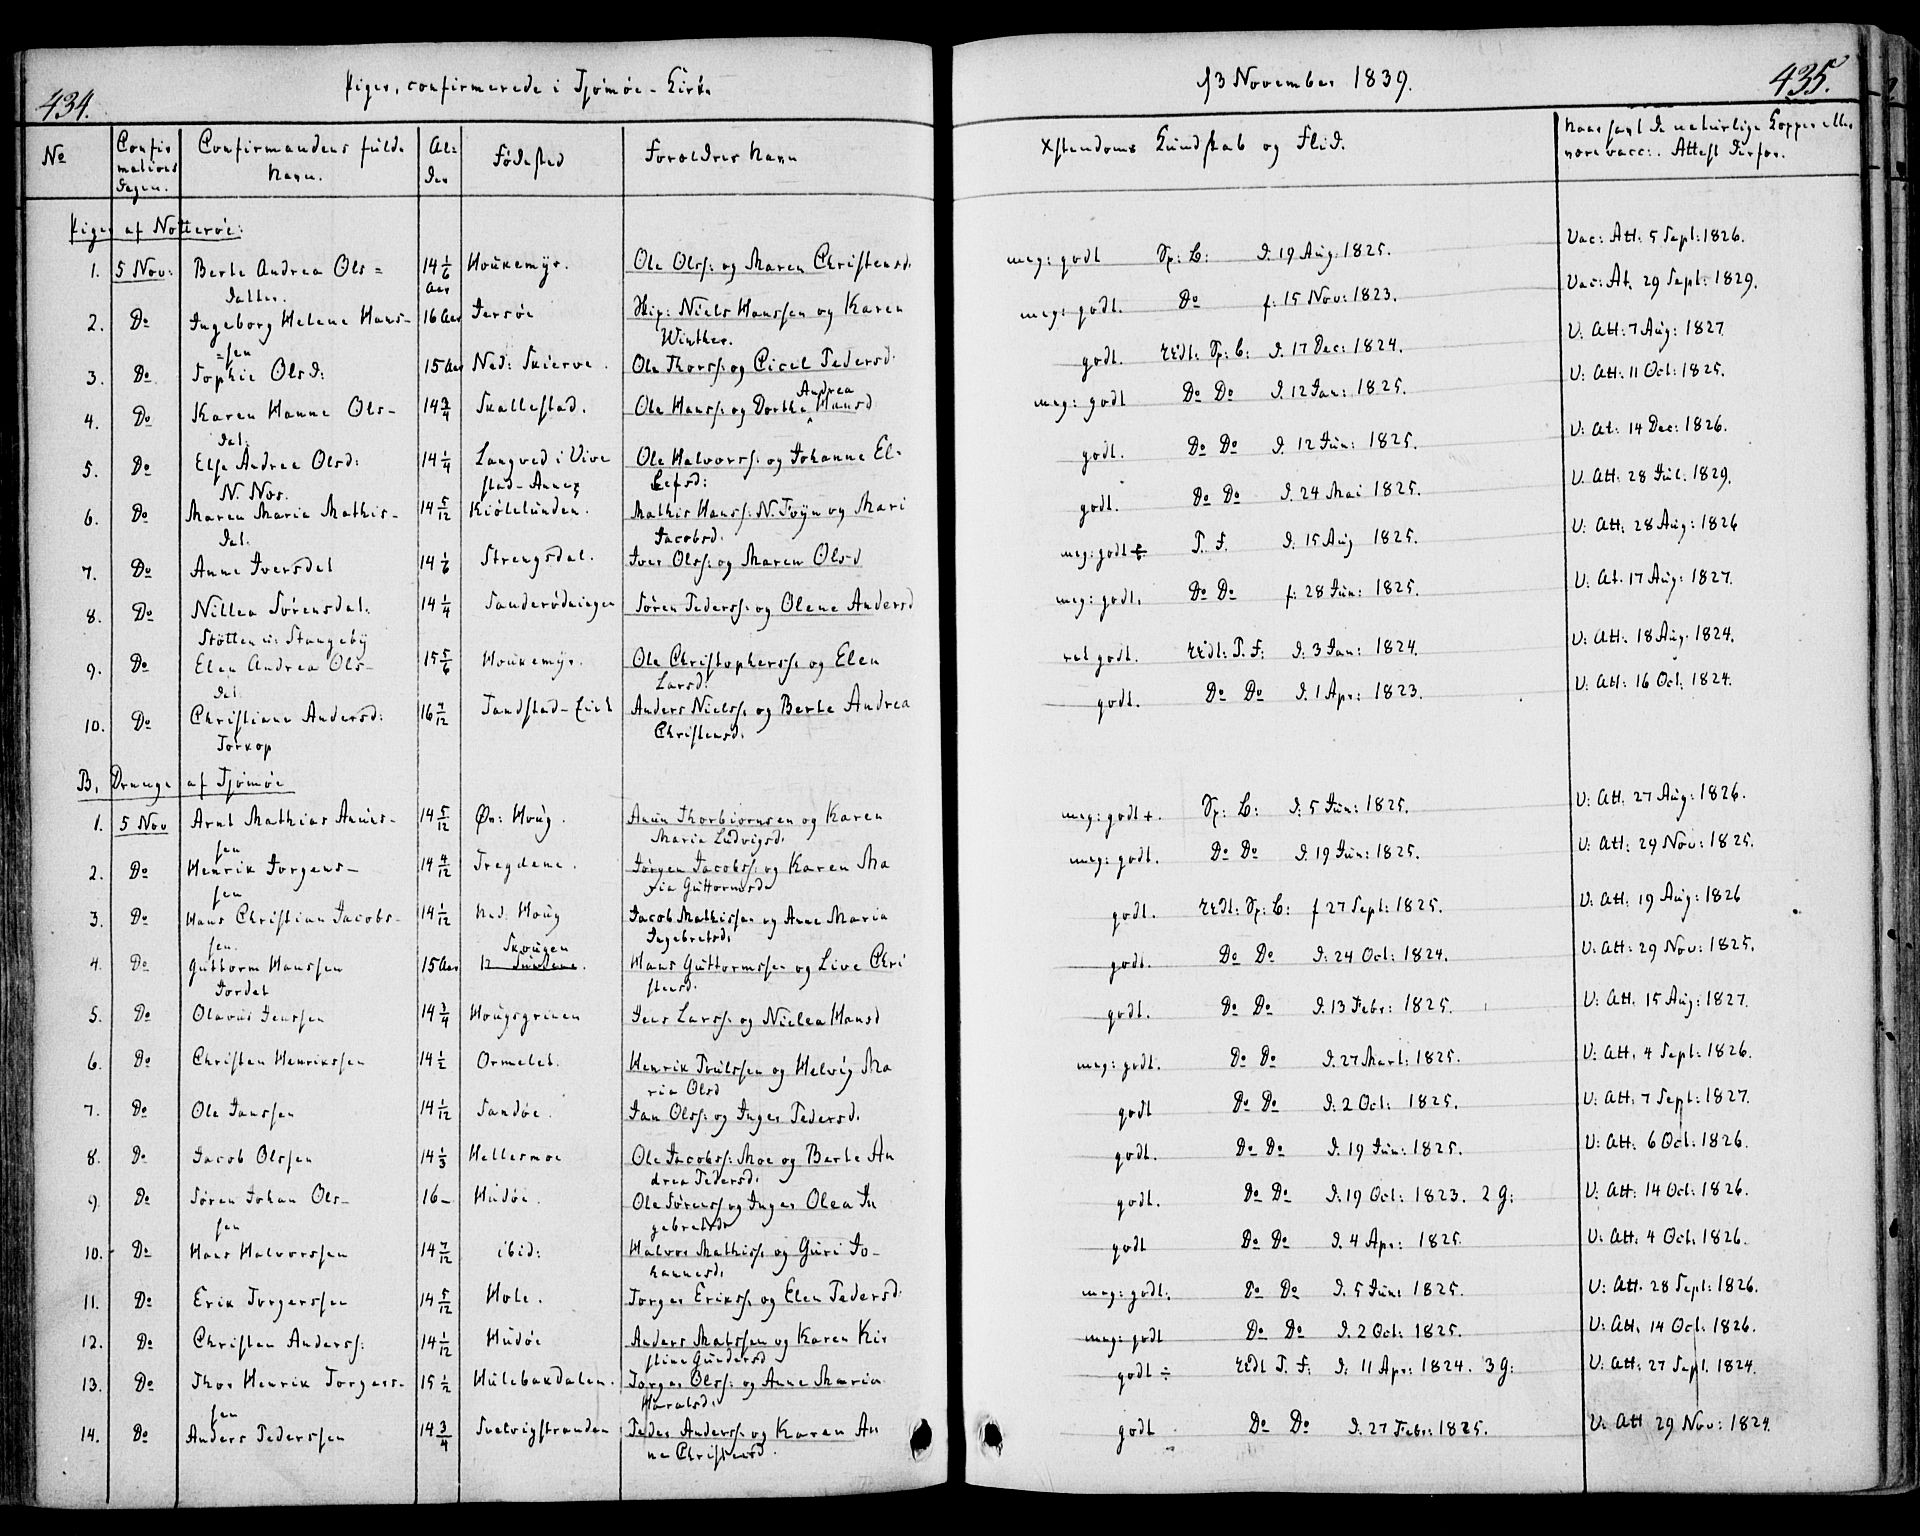 434.
Piger, confirmerede i Tjømøe - Kirke
No
Confir
mations
dagen.
Confirmandens fulde
Navn.
Al-
der
Fødested
Forældres Navn
Piger af Nøtterøe:
1. 5 Nov: Berte Andrea Ols- 14 1/6 Houkemyr. Ole Olss: og Maren Christensd.
datter. Aar
2. Do Ingeborg Helene Hans- 16 Aar Jersøe Skip: Niels Hanssen og Karen
=sen Winther.
3. Do Sophie Olsd: 15 Aar Ned: Skierve. Ole Thorss: og Cicel Pedersd.
4. Do Karen Hanne Ols- 14 3/4 Skallestad. Ole Hanss: og Dorthe Andrea Hansd
dat.
5. Do Else Andrea Olsd: 14 1/4 Langved i Vive Ole Halvorss: og Johanne El-
N. Nos. stad-Annex lefsd:
6. Do Maren Marie Mathis- 14 5/12 Kiølelunden. Mathis Hanss: N. Foyn og Mari
dat. Jacobsd.
7. Do Anne Iversdat 14 1/6 Strengsdal. Iver Olss: og Maren Olsd
8. Do Nillea Sørensdat. 14 1/4 Sanderødningen Søren Pederss: og Olene Andersd
Støtten i: Stangeby
9. Do Elen Andrea Ols- 15 5/6 Houkemyr. Ole Christopherss: og Elen
dat. Larsd:
10. Do Christiane Andersd: 16 7/12 Tandstad-Eiet Anders Nielss: og Berte Andrea
Torkop Christensd:
B. Drenge af Tjømøe
1. 5 Nov Arnt Mathias Anuns- 14 5/12 Øv: Houg. Anun Thorbiørnsen og Karen
sen Maria Ludvigsd.
2. Do Henrik Jørgens- 14 4/12 Tregdene. Jørgen Jacobss: og Karen Ma
sen ria Guttormsd
3. Do Hans Christian Jacobs- 14 1/12 Ned: Houg Jacob Mathissen og Anne Maria
sen. Ingebretsd.
Skougen
4. Do Guttorm Hanssen 15 Aar Hans Guttormssen og Live Chri
Jordet stensd.
5. Do Olavus Jenssen 14 3/4 Hougsgrinen Jens Larss: og Nielea Hansd
6. Do Christen Henrikssen 14 1/2 Ormelet. Henrik Poulssen og Helvig Ma
ria Olsd
7. Do Ole Janssen 14 1/12 Sandøe. Jan Olss: og Inger Pedersd.
8. Do Jacob Olssen 14 1/3 Hellesmoe Ole Jacobss: Moe og Berte An
drea Pedersd.
9. Do Søren Johan Ols- 16 - Hudøe. Ole Sørenss og Inger Olea In
sen gebretsd
10. Do Hans Halvorssen 14 7/12 ibid: Halvor Mathiss: og Guri Jo-
hannesd.
11. Do Erik Torgerssen 14 5/12 Hole. Torger Erikss: og Elen Pedersd.
12. Do Christen Anderss: 14 1/12 Hudøe Anders Matssen og Karen Kir
stine Gundersd
13. Do Thor Henrik Torgers- 15 1/2 Hulebakdalen. Torger Olss: og Anne Maria
sen Haralsd.
14. Do Anders Pederssen 14 3/4 Svelvigstranden Peder Anderss: og Karen An
ne Christensd.
d 3 November 1839.
435.
Xstendoms Kundskab og Flid.
Naar havt de naturlige Kopper eller
være vacc:. Attest derfor.
meg: godt Sp: L: d. 19 Aug: 1825. Vac: Att: 5 Sept: 1826.
meg: godt. Do f: 15 Nov: 1823. Vac: At. 29 Sept: 1829.
godt. Sp: L: d. 17 Dec: 1824. V: Att: 7 Aug: 1827
meg: godt Do Do d. 12 Jan: 1825. V: Att: 11 Oct: 1825.
godt. Do Do d. 12 Jun: 1825. V: At: 14 Dec: 1826.
godt. Do Do d. 24 Mai 1825. V: Att: 28 Jul. 1829.
meg: godt ÷ P. F. d. 15 Aug 1825. V: Att: 28 Aug: 1826
meg: godt. Do Do f: 28 Jun: 1825. V: At. 17 Aug: 1827.
ret godt. P. F: d: 3 Jan: 1824. V: Att: 18 Aug. 1824.
godt. Do Do d. 1 Apr: 1823. V: Att: 16 Oct. 1824.
meg: godt +. Sp: L: d: 5 Jun: 1825. V: Att. 27 Aug: 1826.
meg: godt. Do Do d. 19 Jun: 1825. V: Att: 29 Nov: 1825.
godt. Sp: L: f 27 Sept: 1825. V: Att: 19 Aug: 1826
godt. Do Do d: 24 Oct: 1824. V: Att: 29 Nov: 1825.
godt. Do Do d. 13 Febr: 1825. V: Att. 15 Aug: 1827.
meg: godt. Do Do d. 27 Mart: 1825. V: Att. 4 Sept: 1826.
godt Do Do d: 2 Oct: 1825. V: Att: 7 Sept: 1827.
godt. Do Do d. 19 Jun: 1825. V: Att: 6 Oct: 1826.
godt. Do Do d. 19 Oct: 1823. 2 G: V: Att: 14 Oct: 1826.
godt Do Do d. 4 Apr: 1825. V: Att: 4 Oct. 1826.
meg: godt. Do Do d. 5 Jun: 1825. V: Att. 28 Sept: 1826.
meg: godt Do Do d. 2 Oct: 1825. V: Att. 14 Oct. 1826.
godt ÷ P. F: d: 11 Apr: 1824. 3 G: V: Att: 27 Sept. 1824.
godt Do Do d. 27 Febr: 1825. V: Att 29 Nov: 1824.